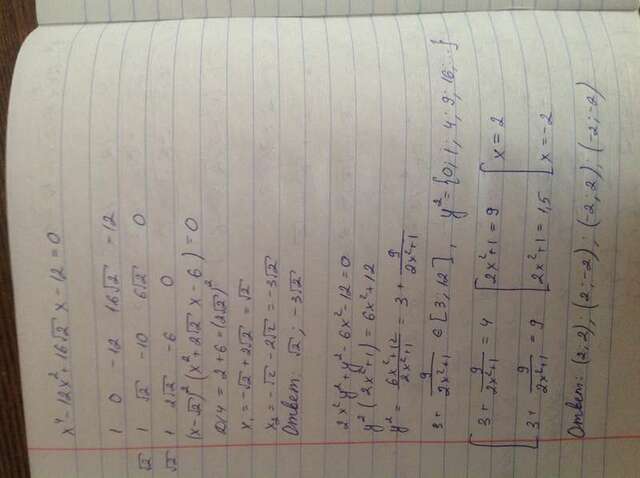 x⁴ - 12x² + 16√2 x - 12 = 0
1 0 -12 16√2 -12
√2 1 √2 -10 6√2 0
√2 1 2√2 -6 0
(x-√2)² (x² + 2√2 x - 6) = 0
D/4 = 2+6 = (2√2)²
x₁ = -√2 + 2√2 = √2
x₂ = -√2 - 2√2 = -3√2
Ответ: √2 ; -3√2
2x²y² + y² - 6x² - 12 = 0
y² (2x²+1) = 6x² + 12
y² = (6x²+12)/(2x²+1) = 3 + 9/(2x²+1)
3 + 9/(2x²+1) ∈ [3; 12], y² = {0; 1; 4; 9; 16; ...}
[ 3 + 9/(2x²+1) = 4 [ 2x²+1 = 9 [ x = 2
3 + 9/(2x²+1) = 9 2x²+1 = 1,5 x = -2
Ответ: (2; 2) ; (2; -2) ; (-2; 2) ; (-2; -2)